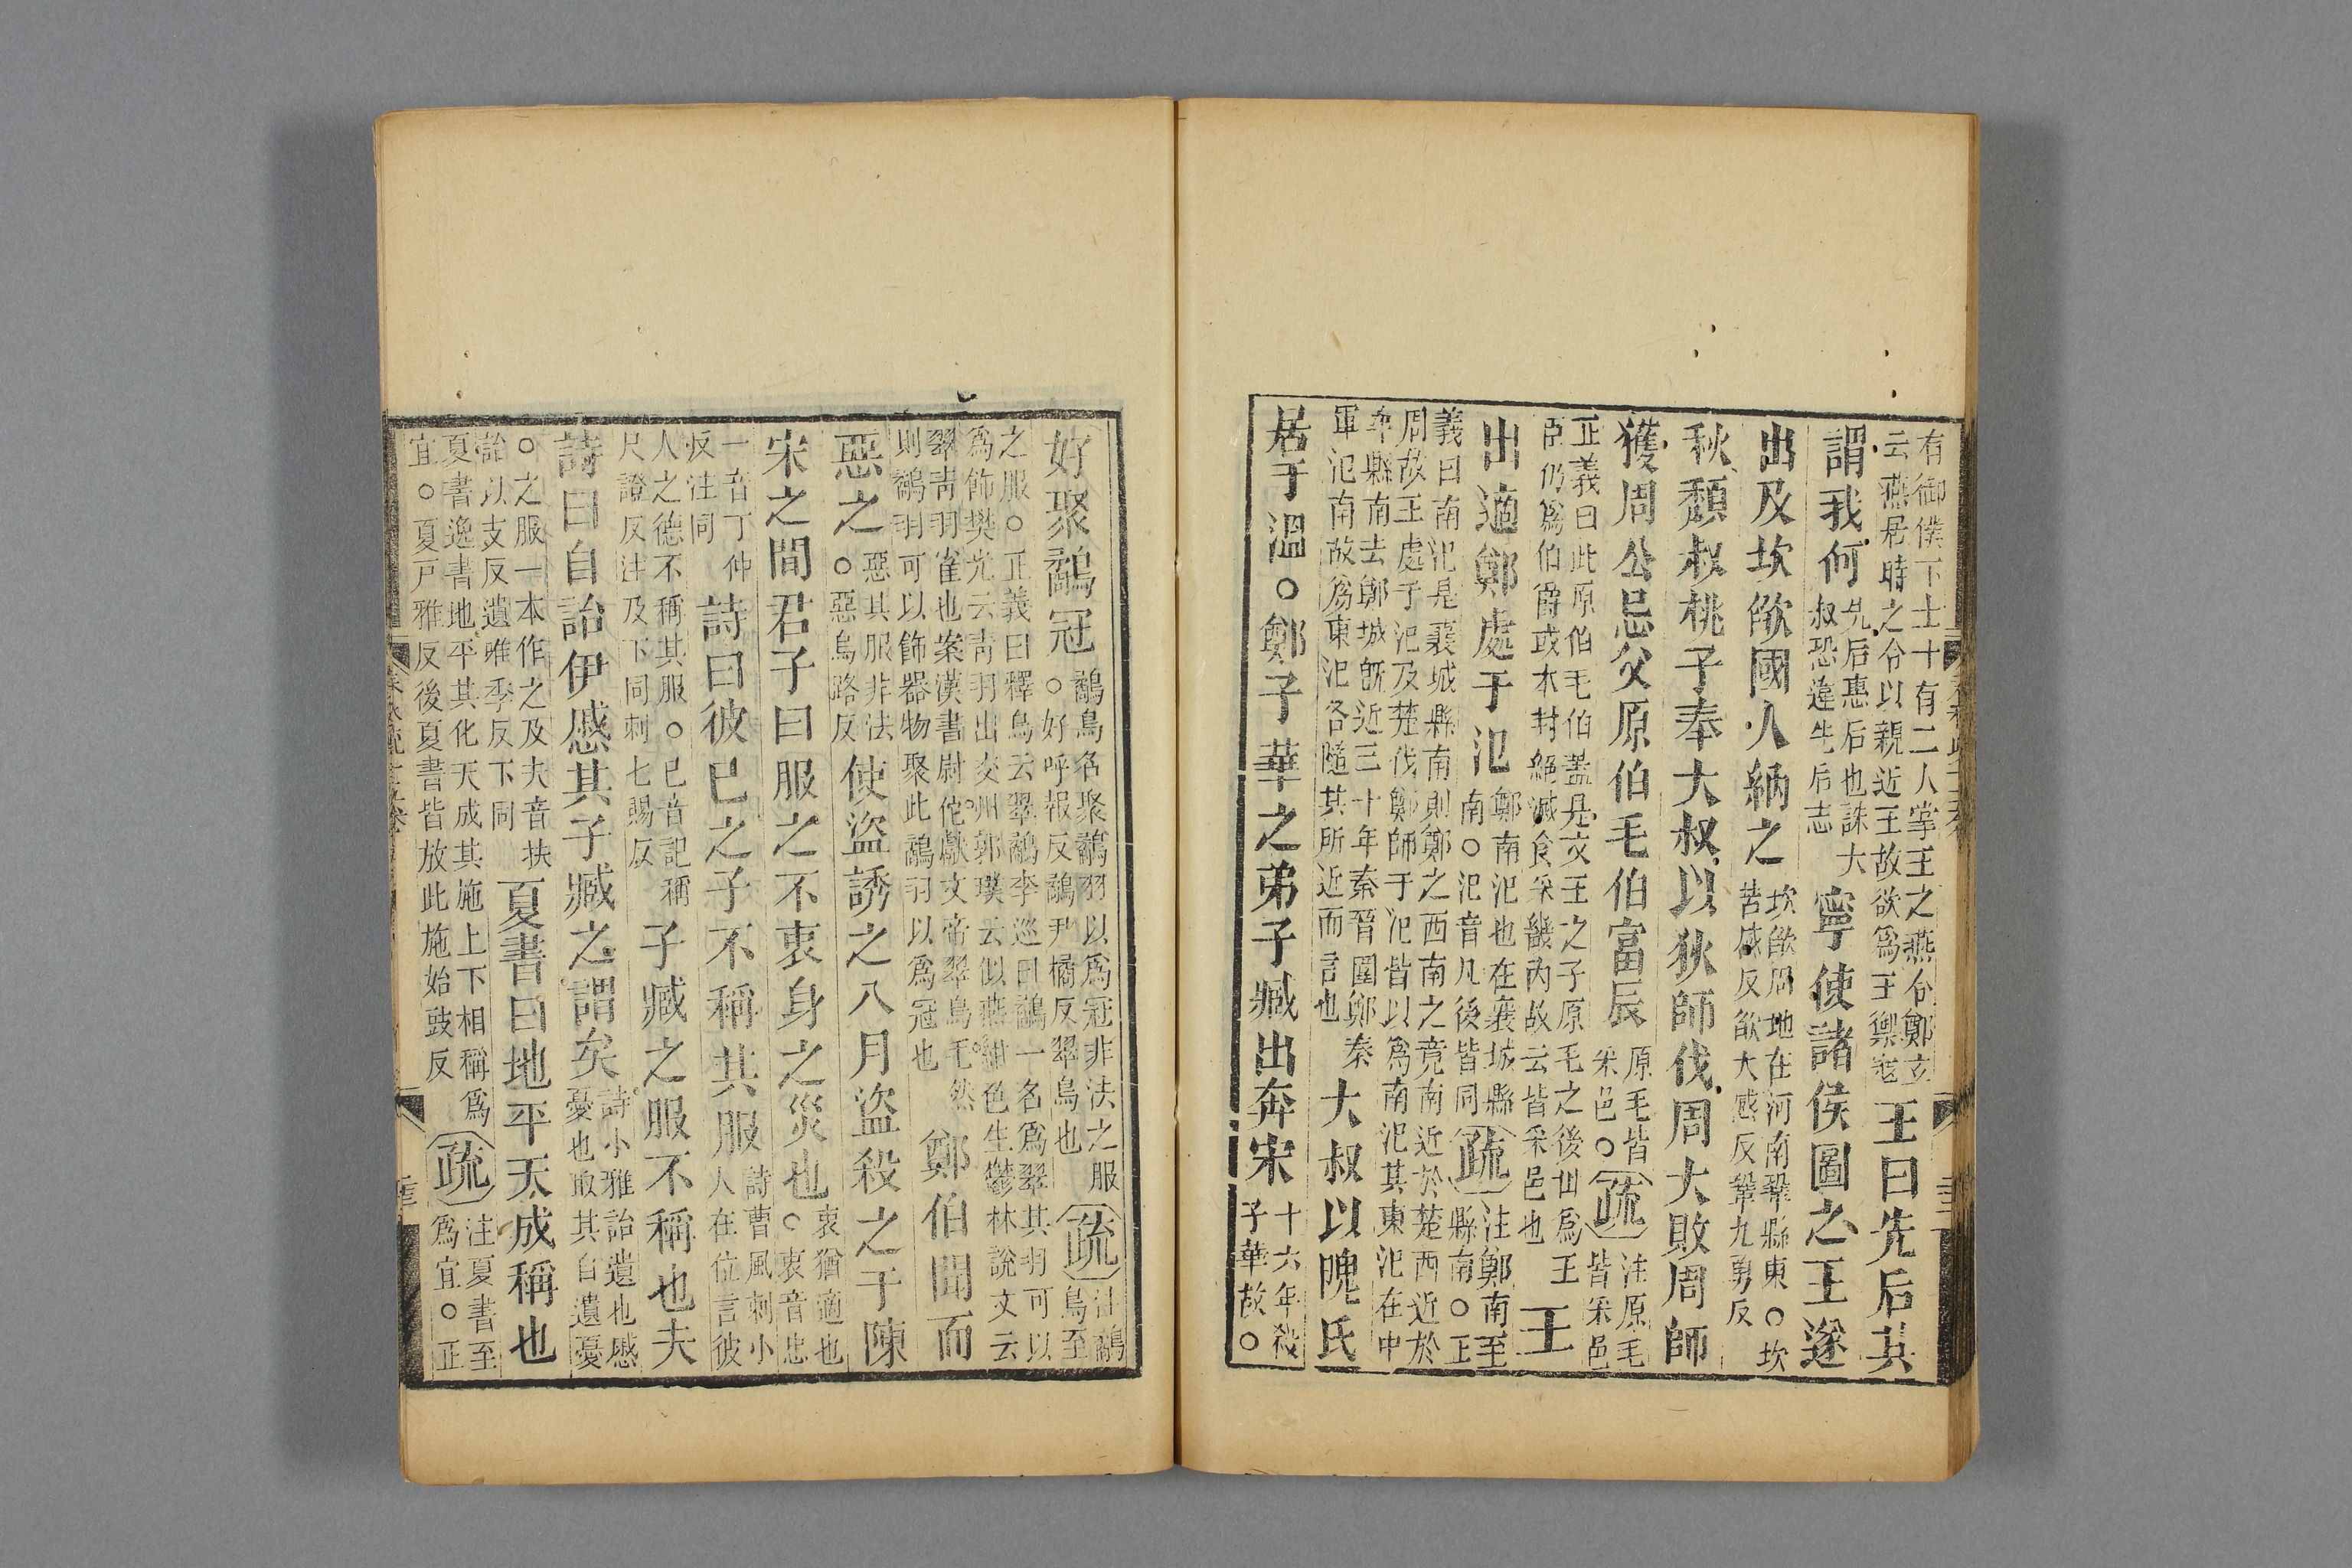 有御僕下士十有二人掌王之燕令鄭玄
云燕居時之令以親近王故欲爲王禦寇王曰先后其
謂我何先后惠后也誅大
叔恐違先后志寧使諸侯圖之王遂
出及坎欿國人納之坎欿周地在河南鞏縣東○坎
苦感反欿大感反鞏九勇反
秋頹叔桃子奉大叔以狄師伐周大敗周師
獲周公忌父原伯毛伯富辰原毛皆
采邑○疏注原毛
皆采邑
正義曰此原伯毛伯蓋是文王之子原毛之後世爲王
臣仍爲伯爵或本封絕滅食采畿內故云皆采邑也王
出適鄭處于氾鄭南氾也在襄城縣
南○氾音凡後皆同疏注鄭南至
縣南○正
義曰南氾是襄城縣南則鄭之西南之竟南近於楚西近於
周故王處于氾及楚伐鄭師于氾皆以爲南氾其東氾在中
牟縣南去鄭城旣近三十年秦晉圍鄭秦
軍氾南故爲東氾各隨其所近而言也大叔以隗氏
居于溫○鄭子華之弟子臧出奔宋十六年殺
子華故○
好聚鷸冠鷸鳥名聚鷸羽以爲冠非法之服
○好呼報反鷸尹橘反翠鳥也疏注鷸
鳥至
之服○正義曰釋鳥云翠鷸李巡曰鷸一名爲翠其羽可以
爲飾樊光云靑羽出交州郭璞云似燕紺色生鬱林說文云
翠靑羽雀也案漢書尉佗獻文帝翠鳥毛然
則鷸羽可以飾器物聚此鷸羽以爲冠也鄭伯聞而
惡之惡其服非法
○惡烏路反使盜誘之八月盜殺之于陳
宋之間君子曰服之不衷身之災也衷猶適也
○衷音忠
一音丁仲
反注同詩曰彼已之子不稱其服詩曹風刺小
人在位言彼
人之德不稱其服○已音記稱
尺證反注及下同刺七賜反子臧之服不稱也夫
詩曰自詒伊慼其子臧之謂矣詩小雅詒遺也慼
憂也取其自遺憂
○之服一本作之及夫音扶
詒以支反遺唯季反下同夏書曰地平天成稱也
夏書逸書地平其化天成其施上下相稱爲
宜○夏戸雅反後夏書皆放此施始豉反疏注夏書至
爲宜○正